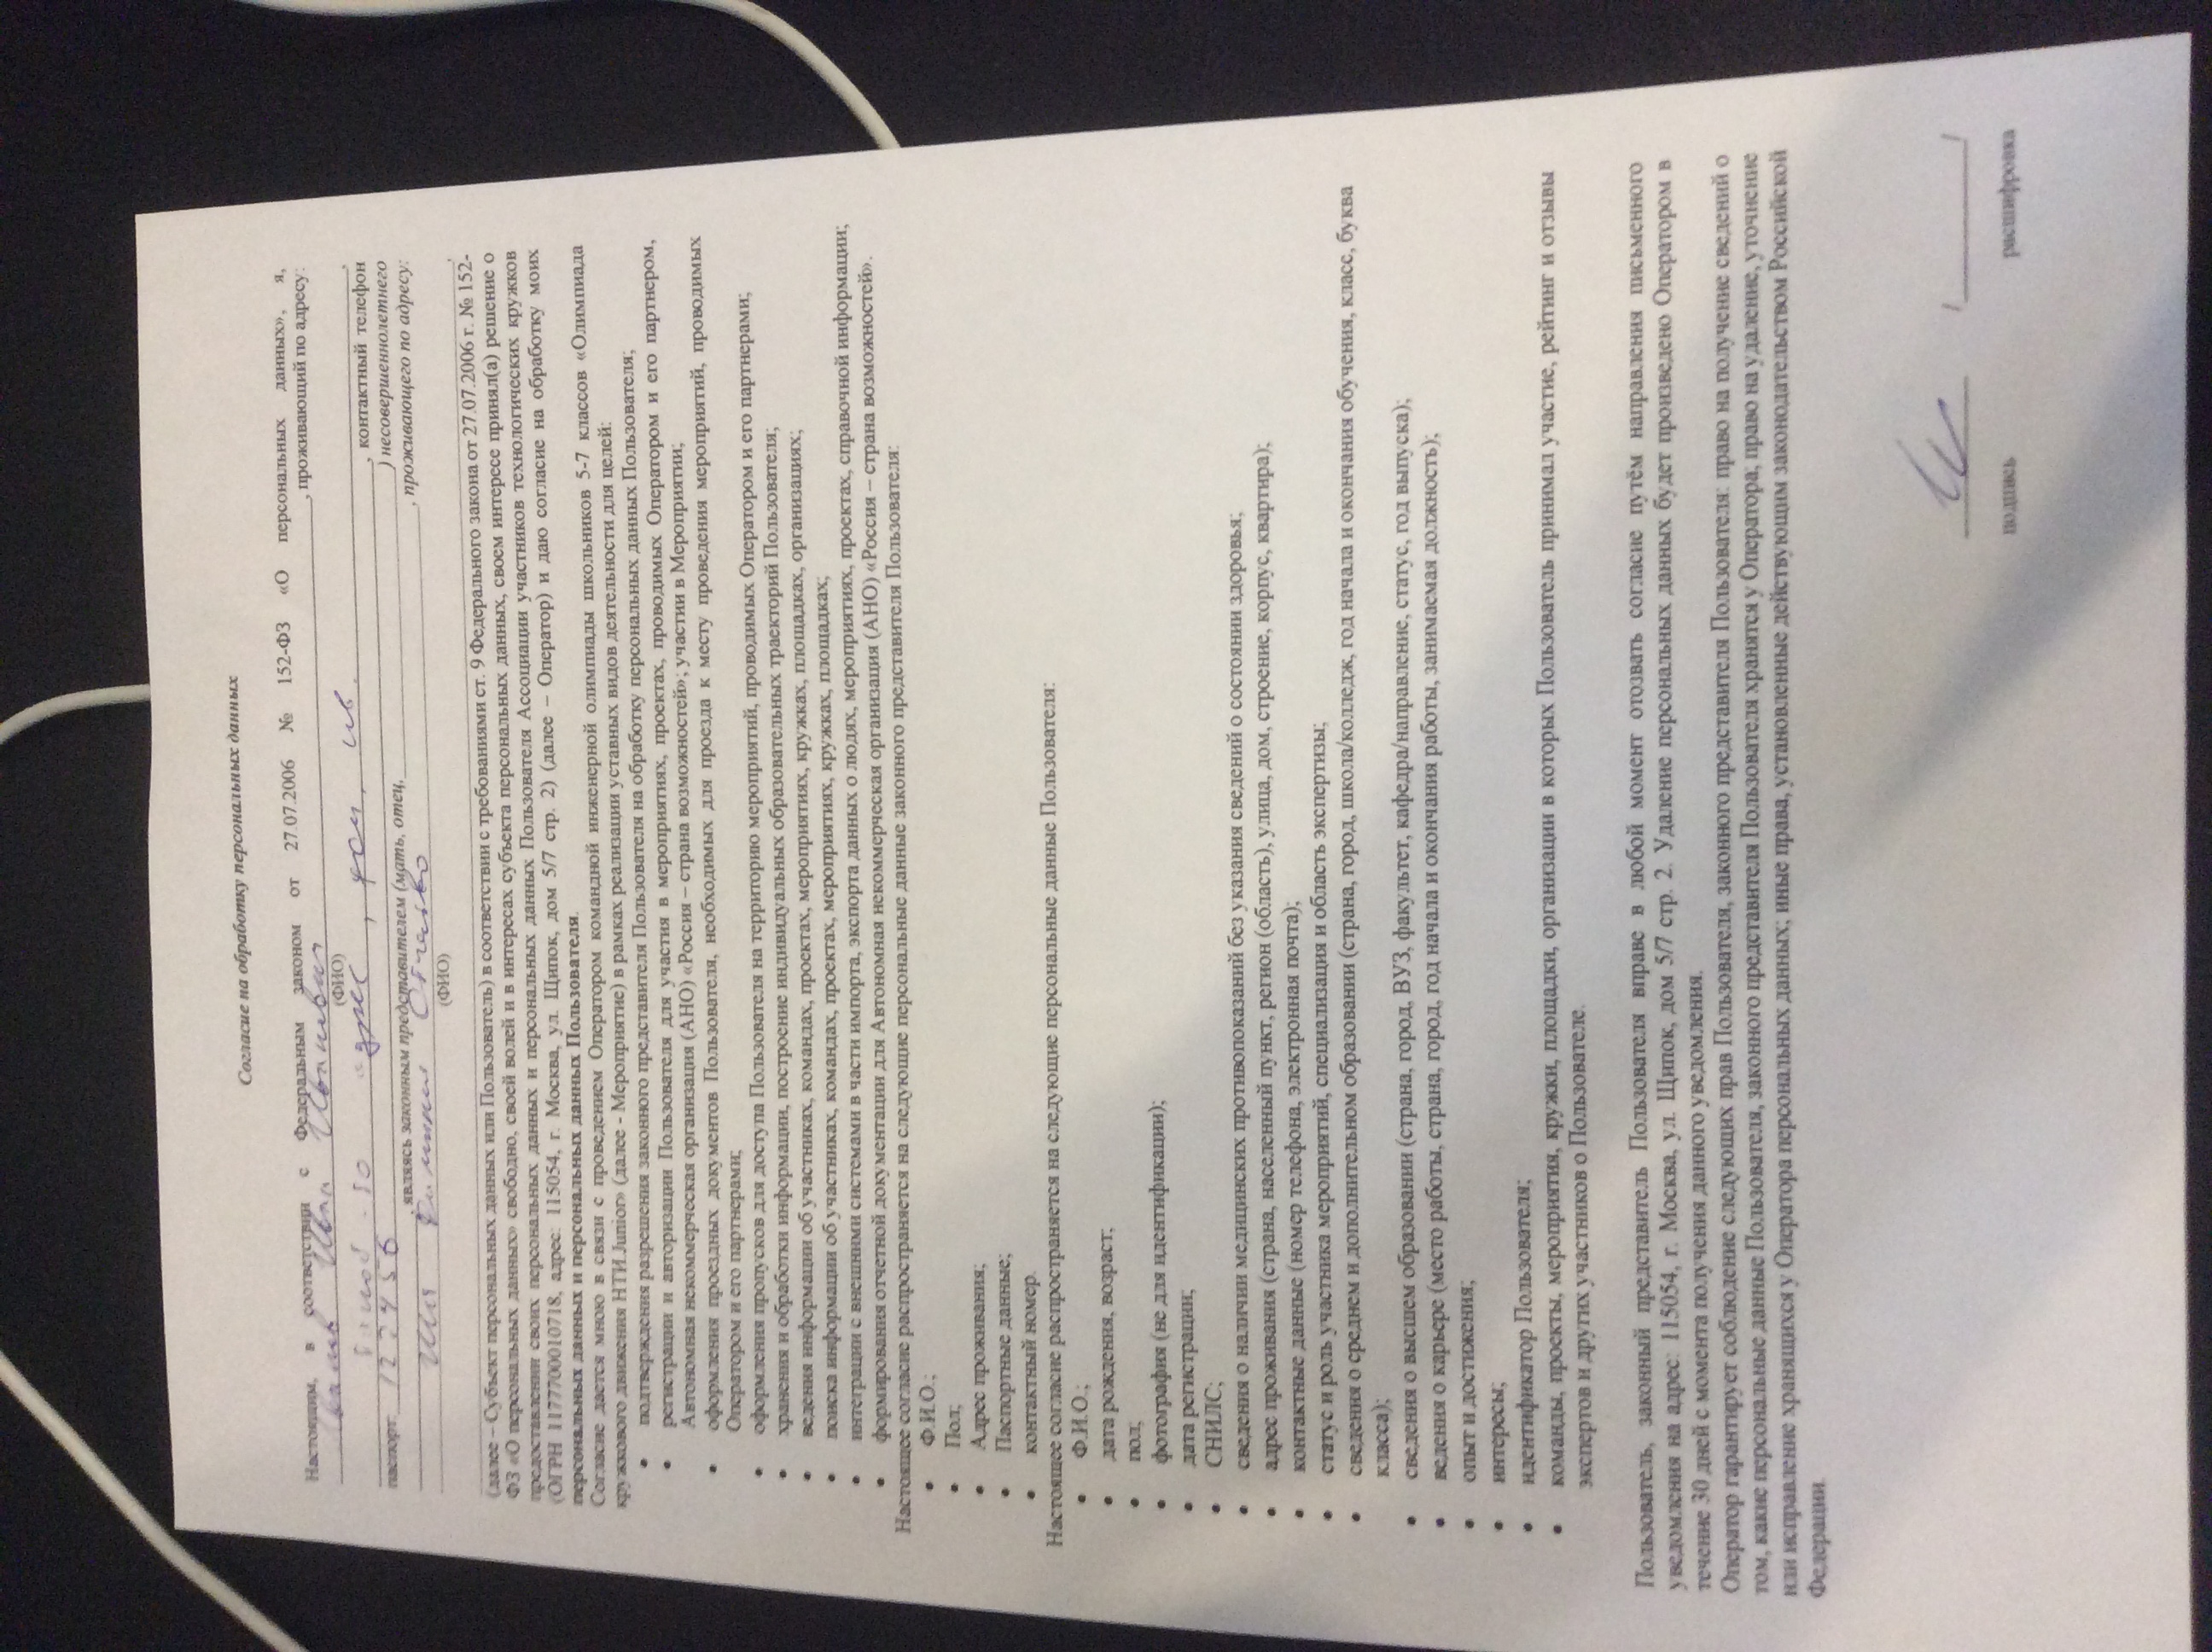 Согласие на обработку персональных данных
Настоящим, в соответствии с Федеральным законом от 27.07.2006 № 152-ФЗ «О персональных данных», я,
Иванов Иван Иванович, проживающий по адресу:
(ФИО)
адрес, дом, кв.,
паспорт 123456, контактный телефон
, являясь законным представителем (мать, отец, ) несовершеннолетнего
Имя Фамилия Отчество, проживающего по адресу:
(ФИО)
,
(далее – Субъект персональных данных или Пользователь) в соответствии с требованиями ст. 9 Федерального закона от 27.07.2006 г. № 152-
ФЗ «О персональных данных» свободно, своей волей и в интересах субъекта персональных данных, своем интересе принял(а) решение о
предоставлении своих персональных данных и персональных данных Пользователя Ассоциации участников технологических кружков
(ОГРН 1177700010718, адрес: 115054, г. Москва, ул. Щипок, дом 5/7 стр. 2) (далее – Оператор) и даю согласие на обработку моих
персональных данных и персональных данных Пользователя.
Согласие дается мною в связи с проведением Оператором командной инженерной олимпиады школьников 5-7 классов «Олимпиада
кружкового движения НТИ.Junior» (далее - Мероприятие) в рамках реализации уставных видов деятельности для целей:
• подтверждения разрешения законного представителя Пользователя на обработку персональных данных Пользователя;
• регистрации и авторизации Пользователя для участия в мероприятиях, проектах, проводимых Оператором и его партнером,
Автономная некоммерческая организация (АНО) «Россия – страна возможностей»; участии в Мероприятии;
• оформления проездных документов Пользователя, необходимых для проезда к месту проведения мероприятий, проводимых
Оператором и его партнерами;
• оформления пропусков для доступа Пользователя на территорию мероприятий, проводимых Оператором и его партнерами;
• хранения и обработки информации, построение индивидуальных образовательных траекторий Пользователя;
• ведения информации об участниках, командах, проектах, мероприятиях, кружках, площадках, организациях;
• поиска информации об участниках, командах, проектах, мероприятиях, кружках, площадках;
• интеграции с внешними системами в части импорта, экспорта данных о людях, мероприятиях, проектах, справочной информации;
• формирования отчетной документации для Автономная некоммерческая организация (АНО) «Россия – страна возможностей».
Настоящее согласие распространяется на следующие персональные данные законного представителя Пользователя:
• Ф.И.О.;
• Пол;
• Адрес проживания;
• Паспортные данные;
• контактный номер.
Настоящее согласие распространяется на следующие персональные данные Пользователя:
• Ф.И.О.;
• дата рождения, возраст;
• пол;
• фотография (не для идентификации);
• дата регистрации;
• СНИЛС;
• сведения о наличии медицинских противопоказаний без указания сведений о состоянии здоровья;
• адрес проживания (страна, населенный пункт, регион (область), улица, дом, строение, корпус, квартира);
• контактные данные (номер телефона, электронная почта);
• статус и роль участника мероприятий, специализация и область экспертизы;
• сведения о среднем и дополнительном образовании (страна, город, школа/колледж, год начала и окончания обучения, класс, буква
класса);
• сведения о высшем образовании (страна, город, ВУЗ, факультет, кафедра/направление, статус, год выпуска);
• ведения о карьере (место работы, страна, город, год начала и окончания работы, занимаемая должность);
• опыт и достижения;
• интересы;
• идентификатор Пользователя;
• команды, проекты, мероприятия, кружки, площадки, организации в которых Пользователь принимал участие, рейтинг и отзывы
экспертов и других участников о Пользователе.
Пользователь, законный представитель Пользователя вправе в любой момент отозвать согласие путём направления письменного
уведомления на адрес: 115054, г. Москва, ул. Щипок, дом 5/7 стр. 2. Удаление персональных данных будет произведено Оператором в
течение 30 дней с момента получения данного уведомления.
Оператор гарантирует соблюдение следующих прав Пользователя, законного представителя Пользователя: право на получение сведений о
том, какие персональные данные Пользователя, законного представителя Пользователя хранятся у Оператора; право на удаление, уточнение
или исправление хранящихся у Оператора персональных данных; иные права, установленные действующим законодательством Российской
Федерации.
подпись расшифровка